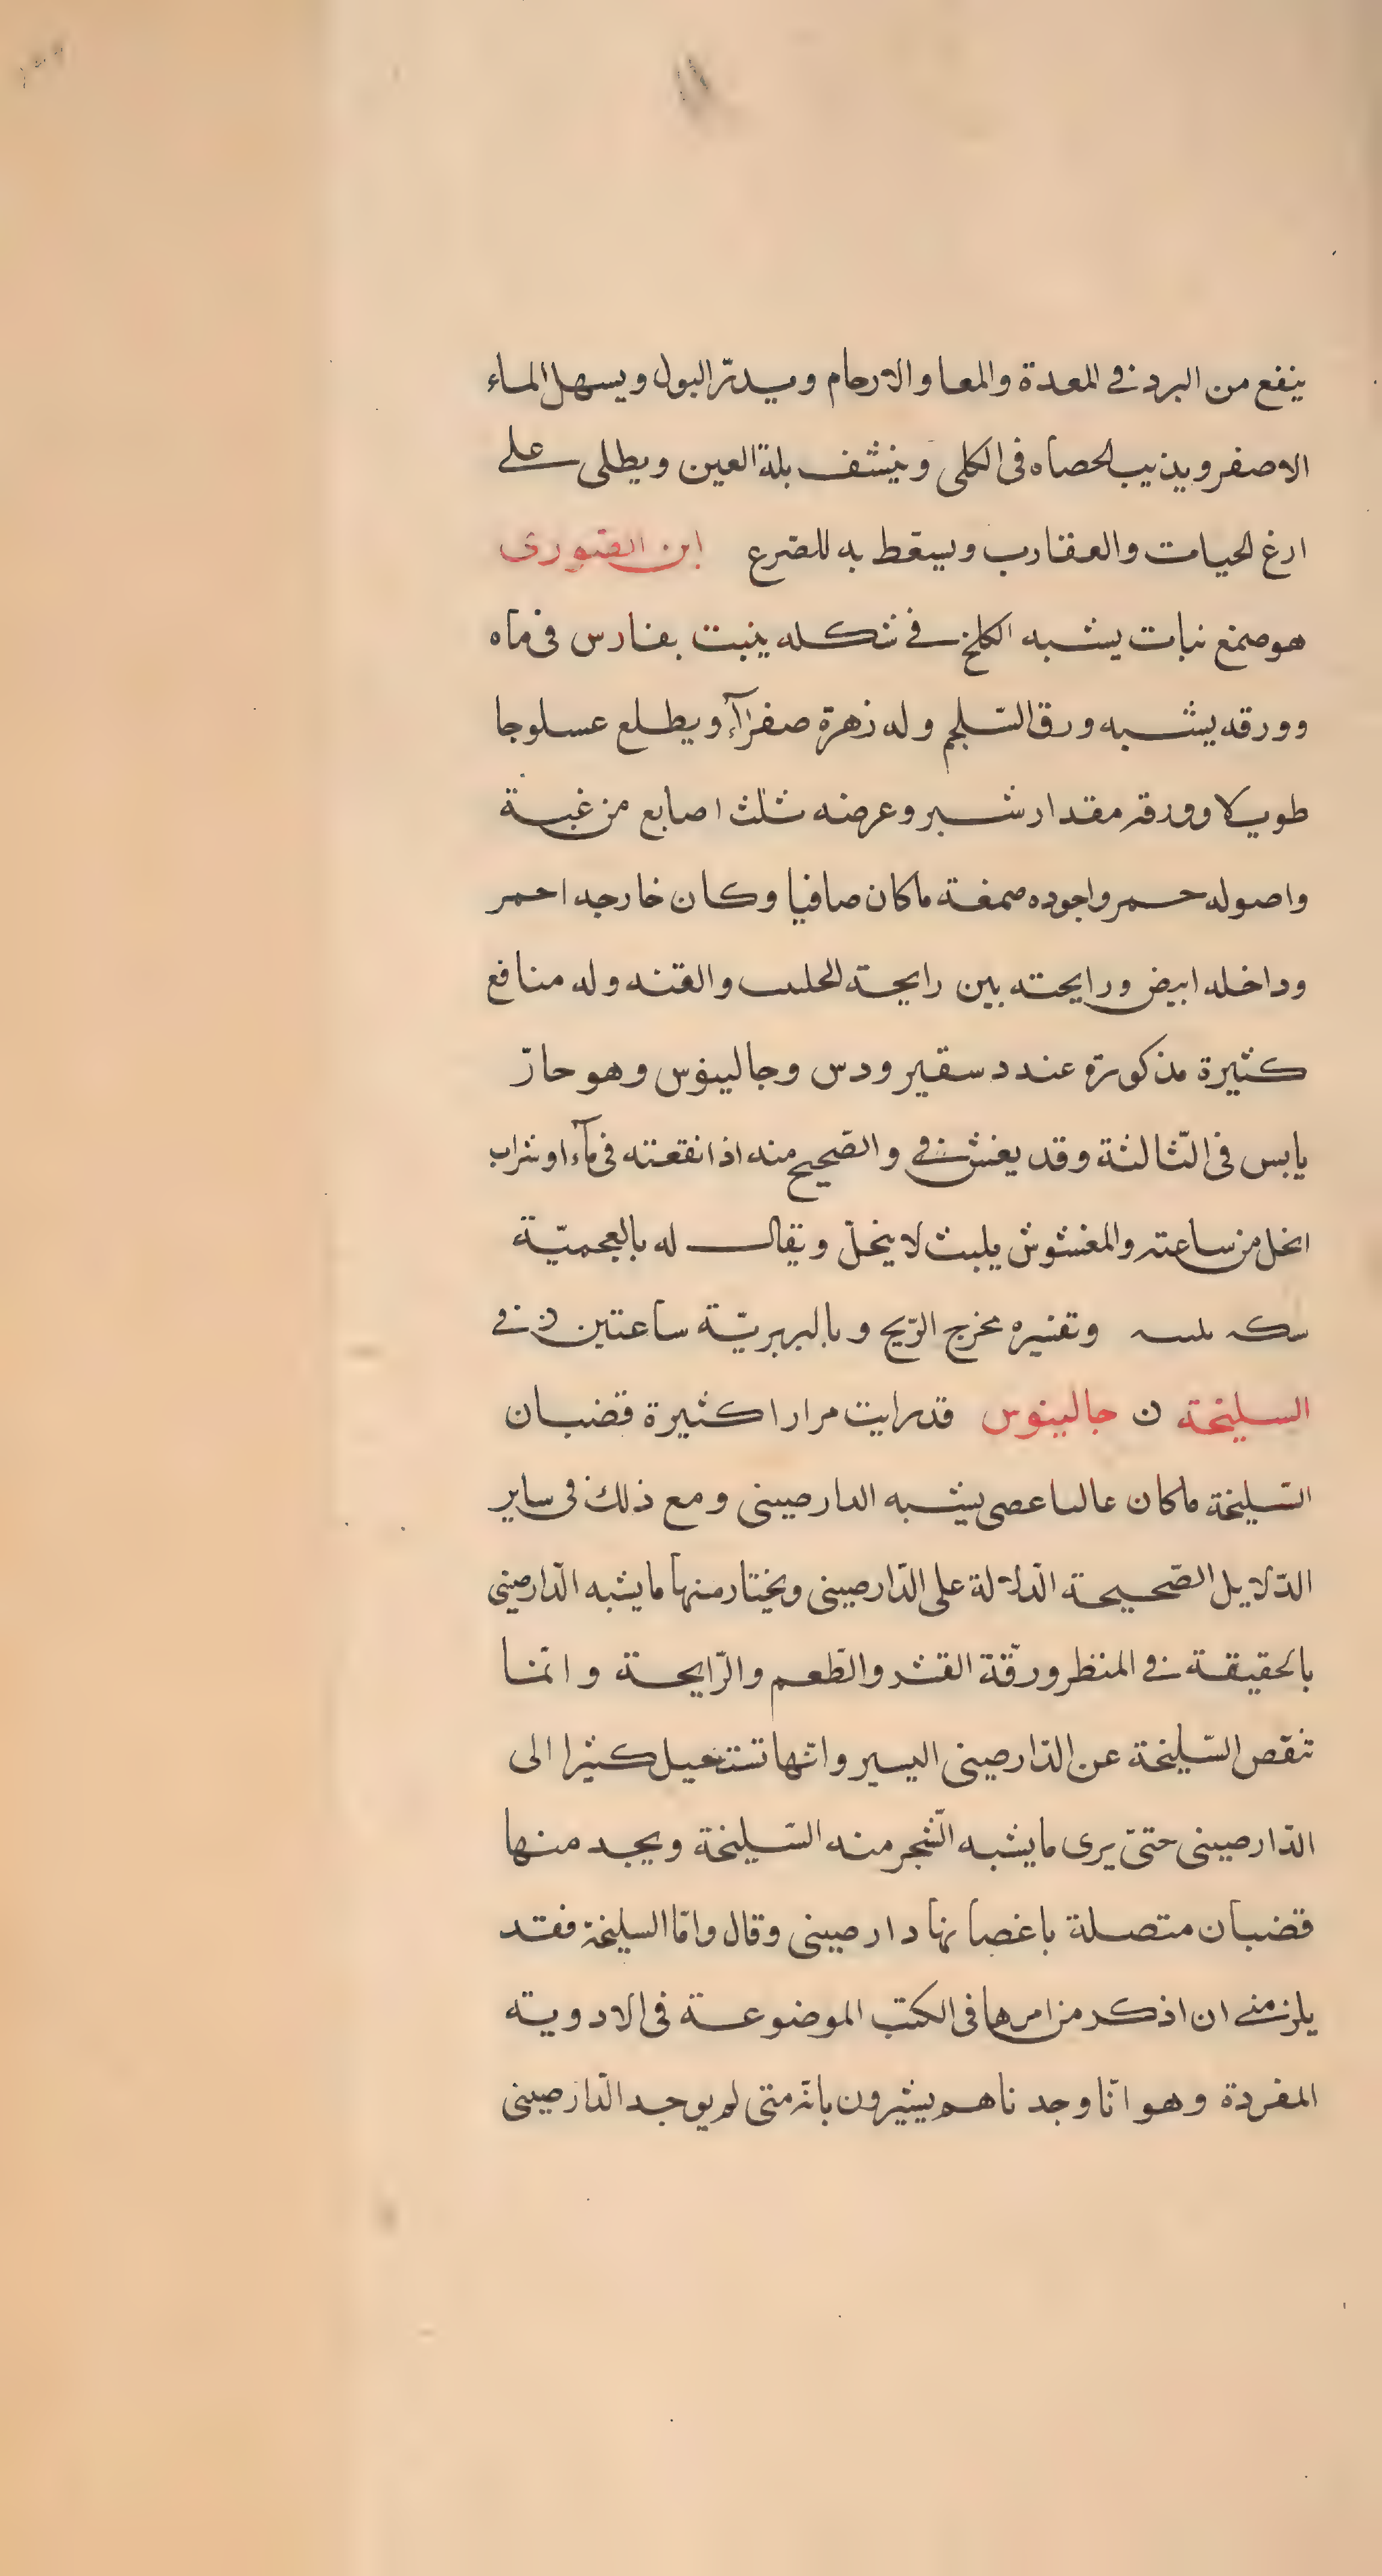 ينفع من البرد في المعدة والمعا والارحام ويدرّ البول ويسهل الماء
الاصفر ويذيب الحصاه فى الكلى وينشف بلة العين ويطلى على
ارغ الحيات والعقارب ويسقط به للصّرع ابن
هو صمغ نبات يشبه الكلخ في شكله ينبت بفارس فى ماه
وورقه يشبه ورق السّلجم وله زهرة صفرآء ويطلع عسلوجا
طويلا وورقه مقدار شبر وعرضه ثلث اصابع من غبة
واصوله حمر واجوده صمغة ماكان صافيا وكان خارجه احمر
وداخله ابيض ورايحته بين رايحة الحلىىٮ والقنه وله منافع
كثيرة مذكورة عند دسقيرودس وجالينوس وهو حارّ
يابس فى الثّالثة وقد يغش في والصّحيح منه اذا نقعته فى مآء او شراب
انحل من ساعته والمغشوش يلبث لا ينحلّ ويقال له بالعجميّة
وتفسيره مخرج الرّيح وبالبربريّة ساعتين ن في
السليخة ن جالينوس قد رايت مرارا كثيرة قضبان
السّليخة ماكان عصى يشبه الدارصينى ومع ذلك فى ساير
الدّلايل الصّحيحة الدّلالة على الدّارصينى ويختار منها ما يشبه الدّارصينى
بالحقيقة في المنظر ورقّة القشر والطّعم والرّايحة وانّما
تنقص السّليخة عن الدّارصينى اليسير وانّها تستحيل كثيرا الى
الدّارصينى حتىّ يرى ما يشبه الشّجر منه السّليخة ويجد منها
قضبان متصلة باغصانها دارصينى وقال وامّا السليخة فقد
يلزمنى ان اذكر من امرها فى الكتب الموضوعة فى الادوية
المفردة وهو انّا وجدناهم يشيرون بانّه متى لم يوجد الدّارصينى